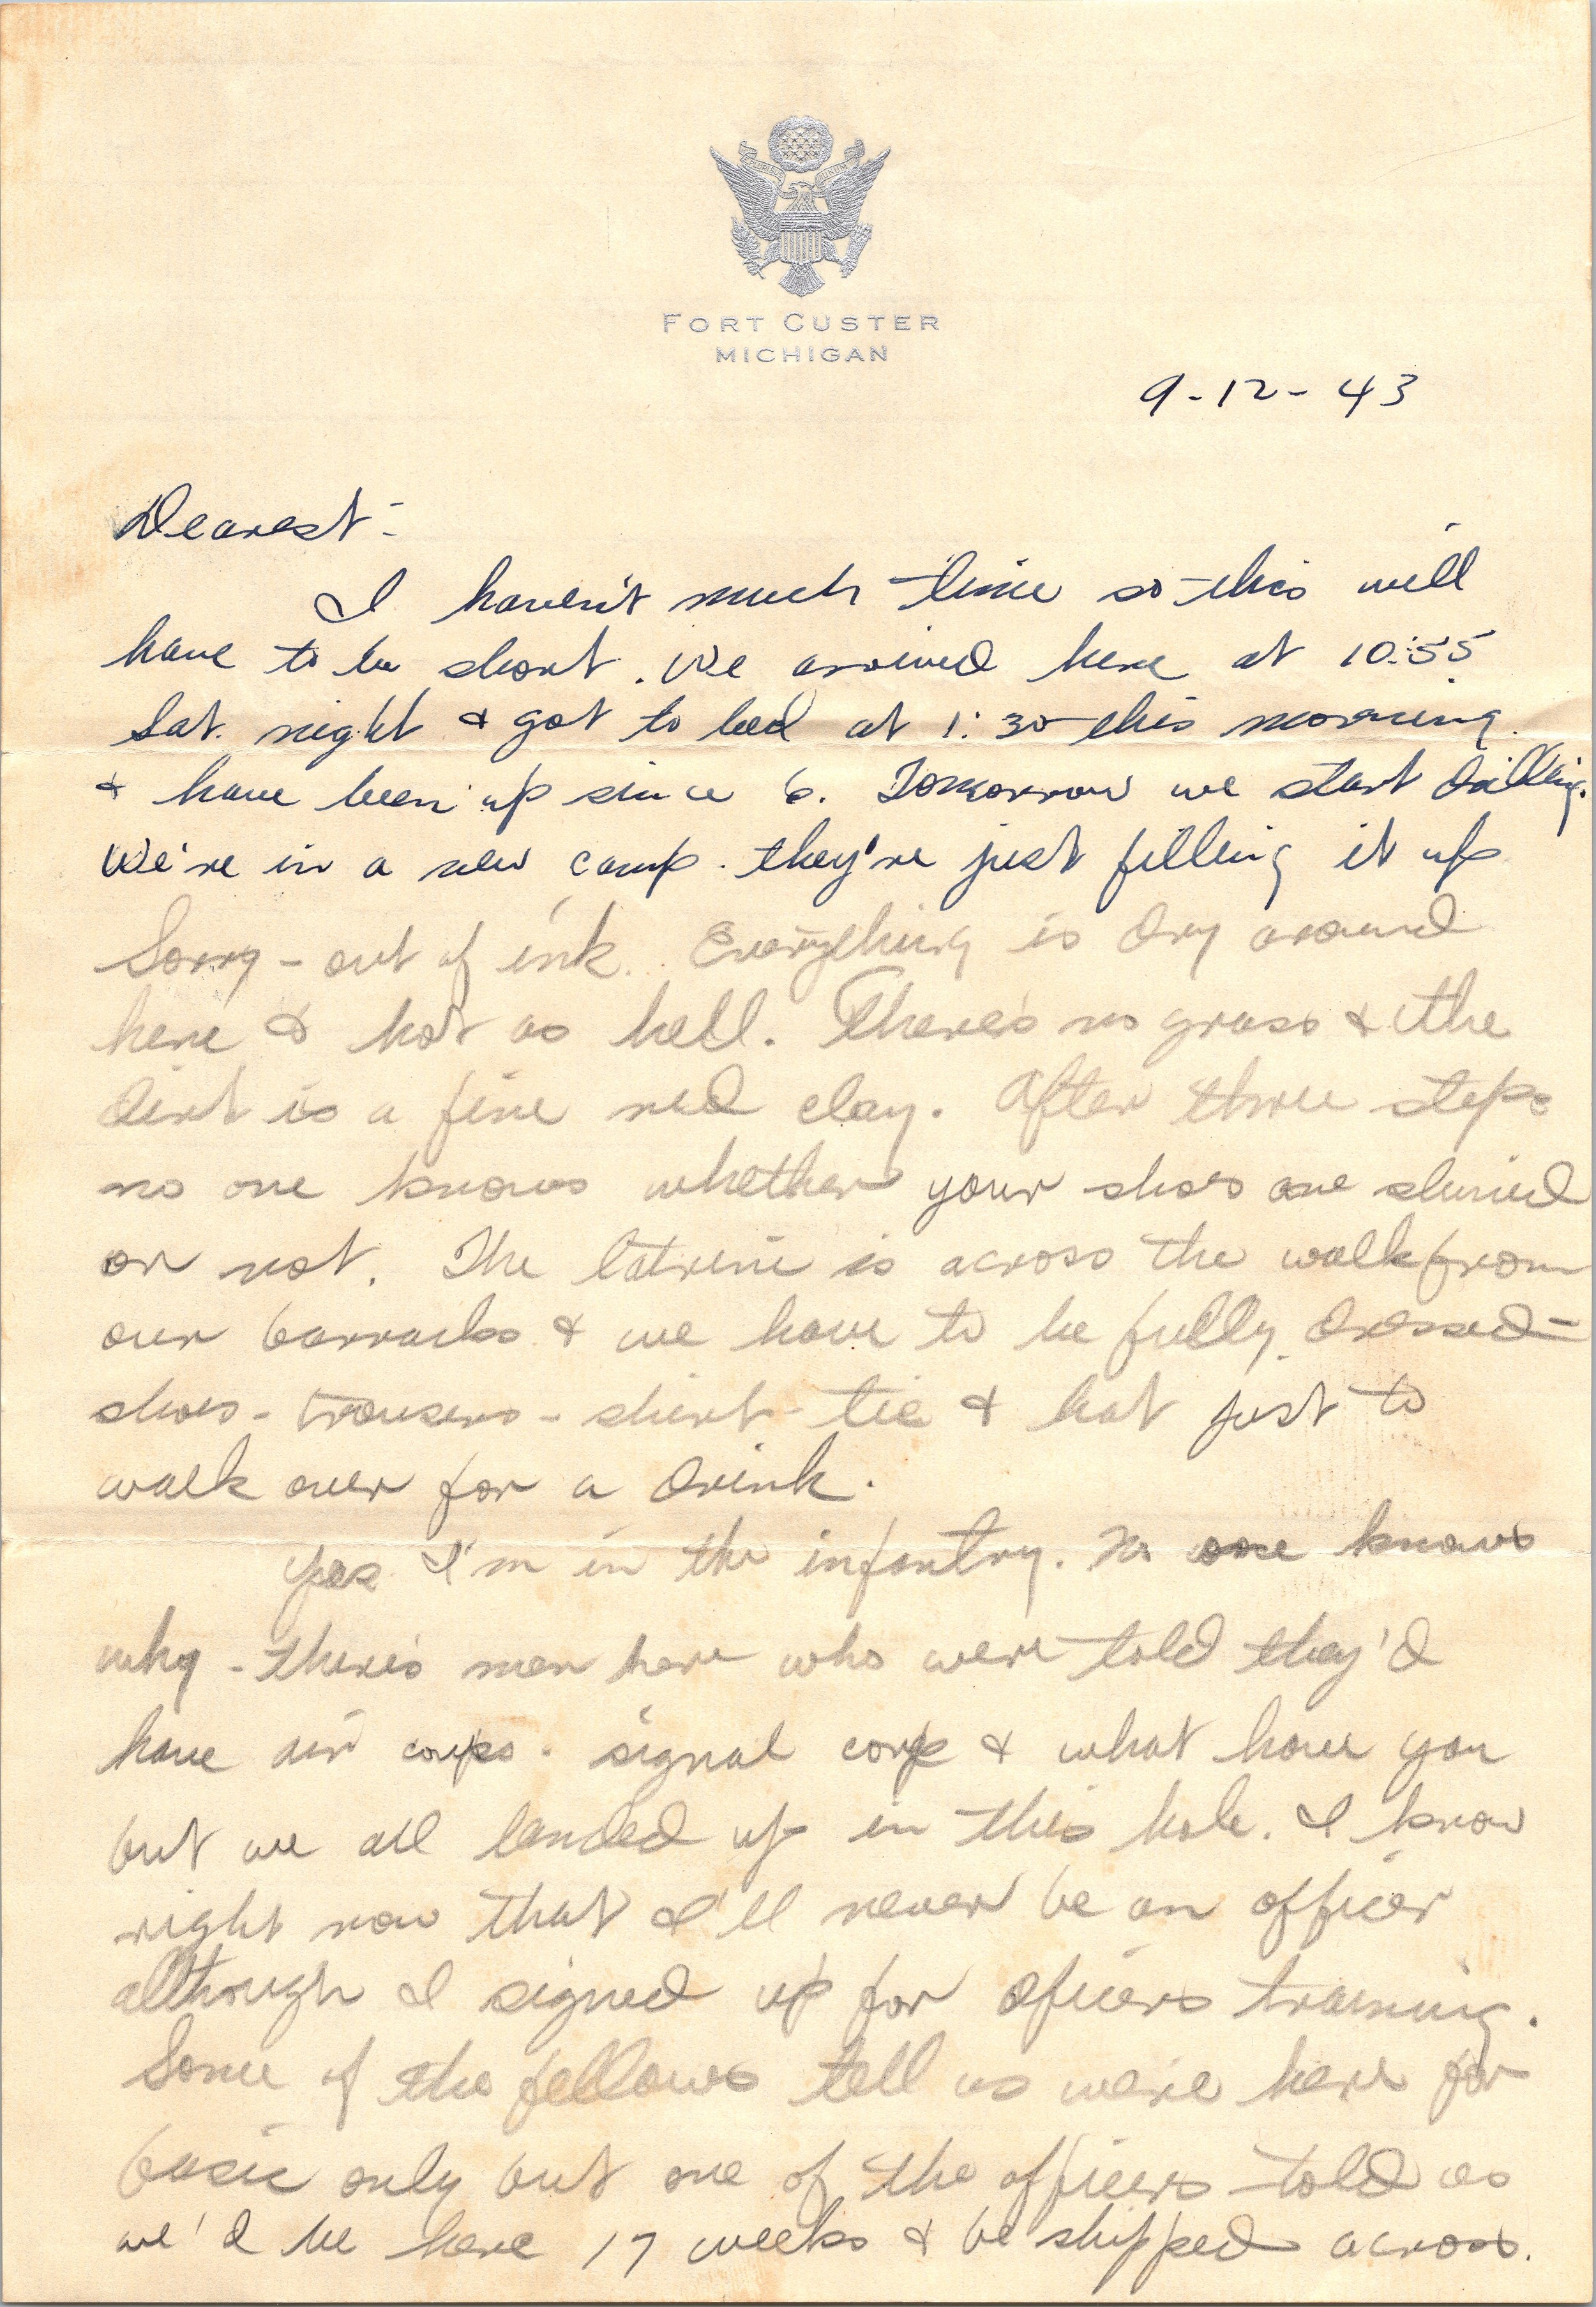 E PLURIBUS UNUM
FORT CUSTER
MICHIGAN
9-12-43
Dearest-
I haven't much time so this will
have to be short. We arrived here at 10:55
Sat. night & got to bed at 1:30 this morning
& have been up since 6. Tomorrow we start drilling.
We're in a new camp. they're just filling it up
Sorry - out of ink. Everything is dry around
here & hot as hell. There's no grass & the
dirt is a fine red clay. After three steps
no one knows whether your shoes are shined
or not. The latrine is across the walk from
our barracks & we have to be fully dressed -
shoes - trousers - shirt - tie & hat just to
walk over for a drink.
Yes I'm in the infantry. No one knows
why - there's men here who were told they'd
have air corps. signal corp & what have you
but we all landed up in this hole. I know
right now that I'll never be an officer
although I signed up for oficers training.
Some of the fellows tell us we're here for
basic only but one of the officers told us
we'd be here 17 weeks & be shipped across.